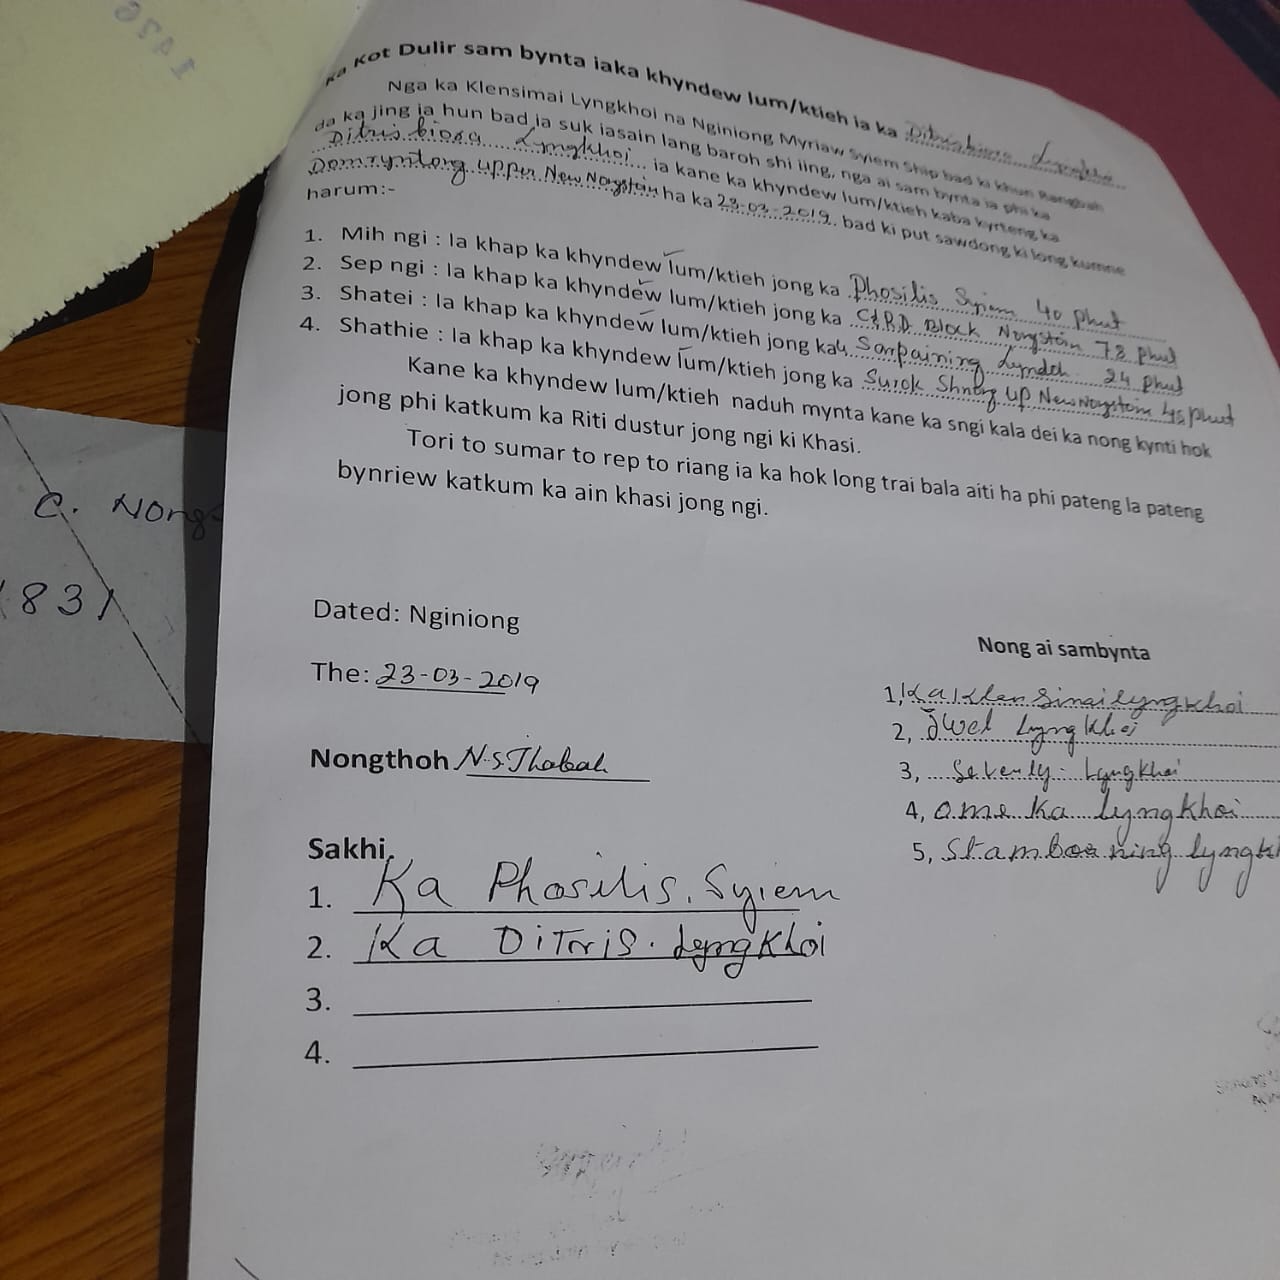 1476
Ka Kot Dulir sam bynta iaka khyndew lum/ktieh ia ka Ditrisbiora Lyngkhoi
Nga ka Klensimai Lyngkhoi na Nginiong Myriaw Syiem Ship bad ki khun Rangbah
da ka jing ia hun bad ia suk iasain lang baroh shi iing, nga ai sam bynta ia phi ka
Ditrisbiora Lyngkhoi ia kane ka khyndew lum/ktieh kaba kyrteng ka
Domryntong upper New Nongstoin ha ka 23-03-2019. bad ki put sawdong ki long kumne
harum:-
1. Mih ngi : la khap ka khyndew lum/ktieh jong ka Phosilis Syiem 40 phut
2. Sep ngi : la khap ka khyndew lum/ktieh jong ka C&RD Block Nongstoin 78 phut
3. Shatei : la khap ka khyndew lum/ktieh jong ka Sorpaining Lymdeh 24 phut
4. Shathie : la khap ka khyndew lum/ktieh jong ka Surok Shnong up New Nongstoin 45 phut
Kane ka khyndew lum/ktieh naduh mynta kane ka sngi kala dei ka nong kynti hok
jong phi katkum ka Riti dustur jong ngi ki Khasi.
Tori to sumar to rep to riang ia ka hok long trai bala aiti ha phi pateng la pateng
bynriew katkum ka ain khasi jong ngi.
C. Nong
831
Dated: Nginiong
The: 23-03-2019
Nongthoh N.S.Thabah
Nong ai sambynta
1, Ka Klen Simai lyngkhoi
2, Jwel Lyngkhoi
3, Severly Lyngkhoi
4, ome ka lyngkhoi
5, Stamborning lyngk
Sakhi,
1. Ka Phosilis. Syiem
2. Ka DiTris. Lyngkhoi
3.
4.